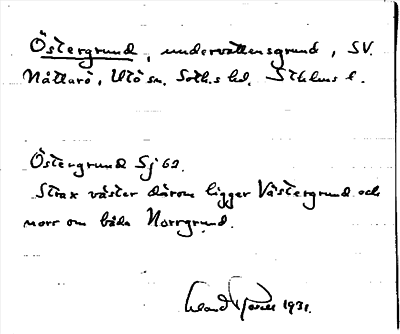 Östergrund, undervattensgrund, SV.
Nåttarö, Utö sn. Soth.s hd. Sthlms l.
Östergrund Sj 62.
Strax väster därom ligger Västergrund och
norr om båda Norrgrund.
1931.